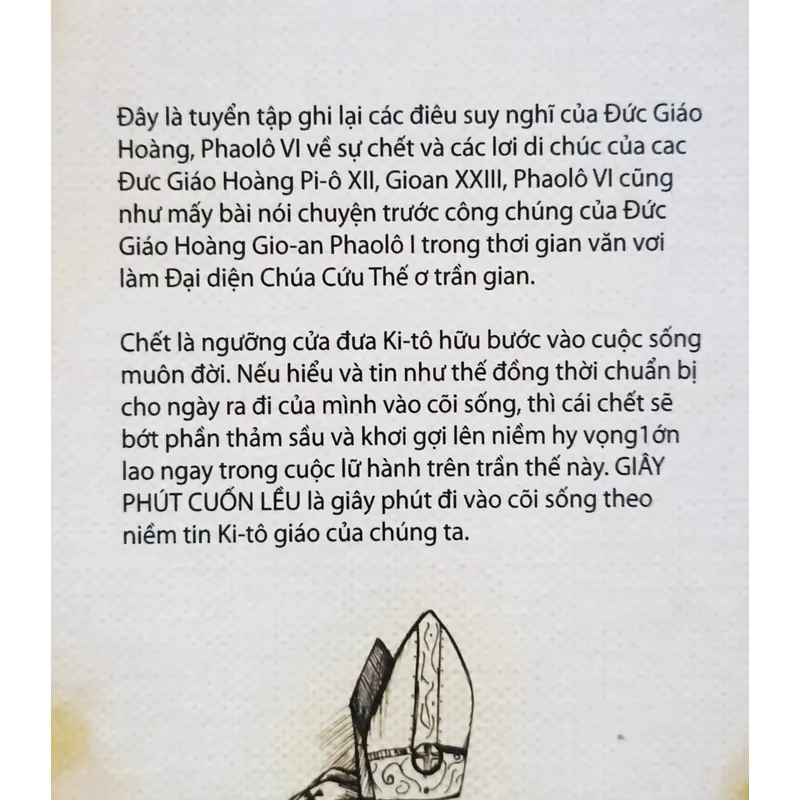 Đây là tuyển tập ghi lại các điêu suy nghĩ của Đức Giáo
Hoàng, Phaolô VI về sự chết và các lơi di chúc của cac
Đưc Giáo Hoàng Pi-ô XII, Gioan XXIII, Phaolô VI cũng
như mấy bài nói chuyện trước công chúng của Đức
Giáo Hoàng Gio-an Phaolô I trong thơi gian văn vơi
làm Đại diện Chúa Cứu Thế ơ trần gian.
Chết là ngưỡng cửa đưa Ki-tô hữu bước vào cuộc sống
muôn đời. Nếu hiểu và tin như thế đồng thời chuẩn bị
cho ngày ra đi của mình vào cõi sống, thì cái chết sẽ
bớt phần thảm sầu và khơi gợi lên niềm hy vọng1ớn
lao ngay trong cuộc lữ hành trên trần thế này. GIÂY
PHÚT CUỐN LỀU là giây phút đi vào cõi sống theo
niềm tin Ki-tô giáo của chúng ta.